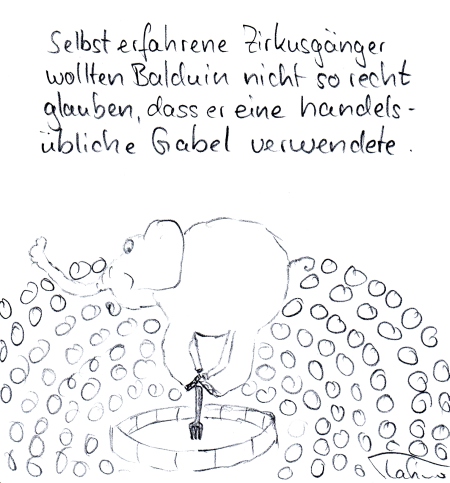 Selbst erfahrene Zirkusgänger
wollten Balduin nicht so recht
glauben, dass er eine handels-
übliche Gabel verwendete.